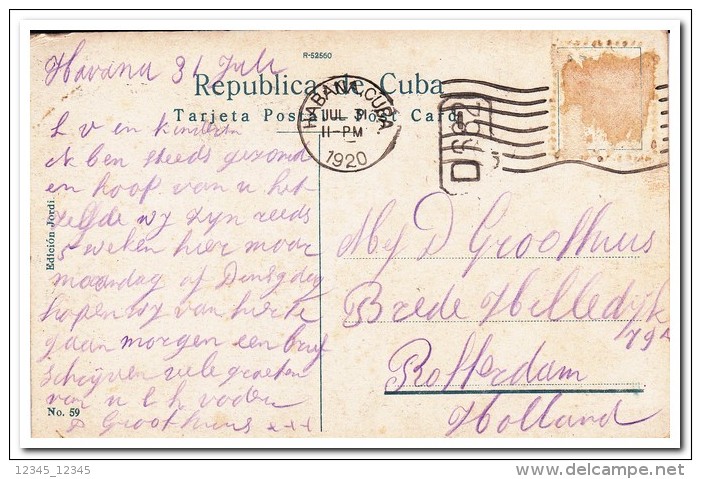 R-52560
Havana 31 Juli
Republica de Cuba
Tarjeta Postal Post Card
HABANA, CUBA
JUL 31
11-PM
1920
L v en kinderen
ik ben steeds gezond
en hoop van u het
zelfde wy zyn reeds
5 weken hier maar
maandag of Dinsgdag
hopen wy van hier te
gaan morgen een brief
schrijven vele groeten
van u l h vader
D Groothuis xxx
Edición Jordi.
No. 59
Mej D Groothuis
Brede Hilledijk
79A
Rotterdam
Holland
12345_12345
delcampe.net